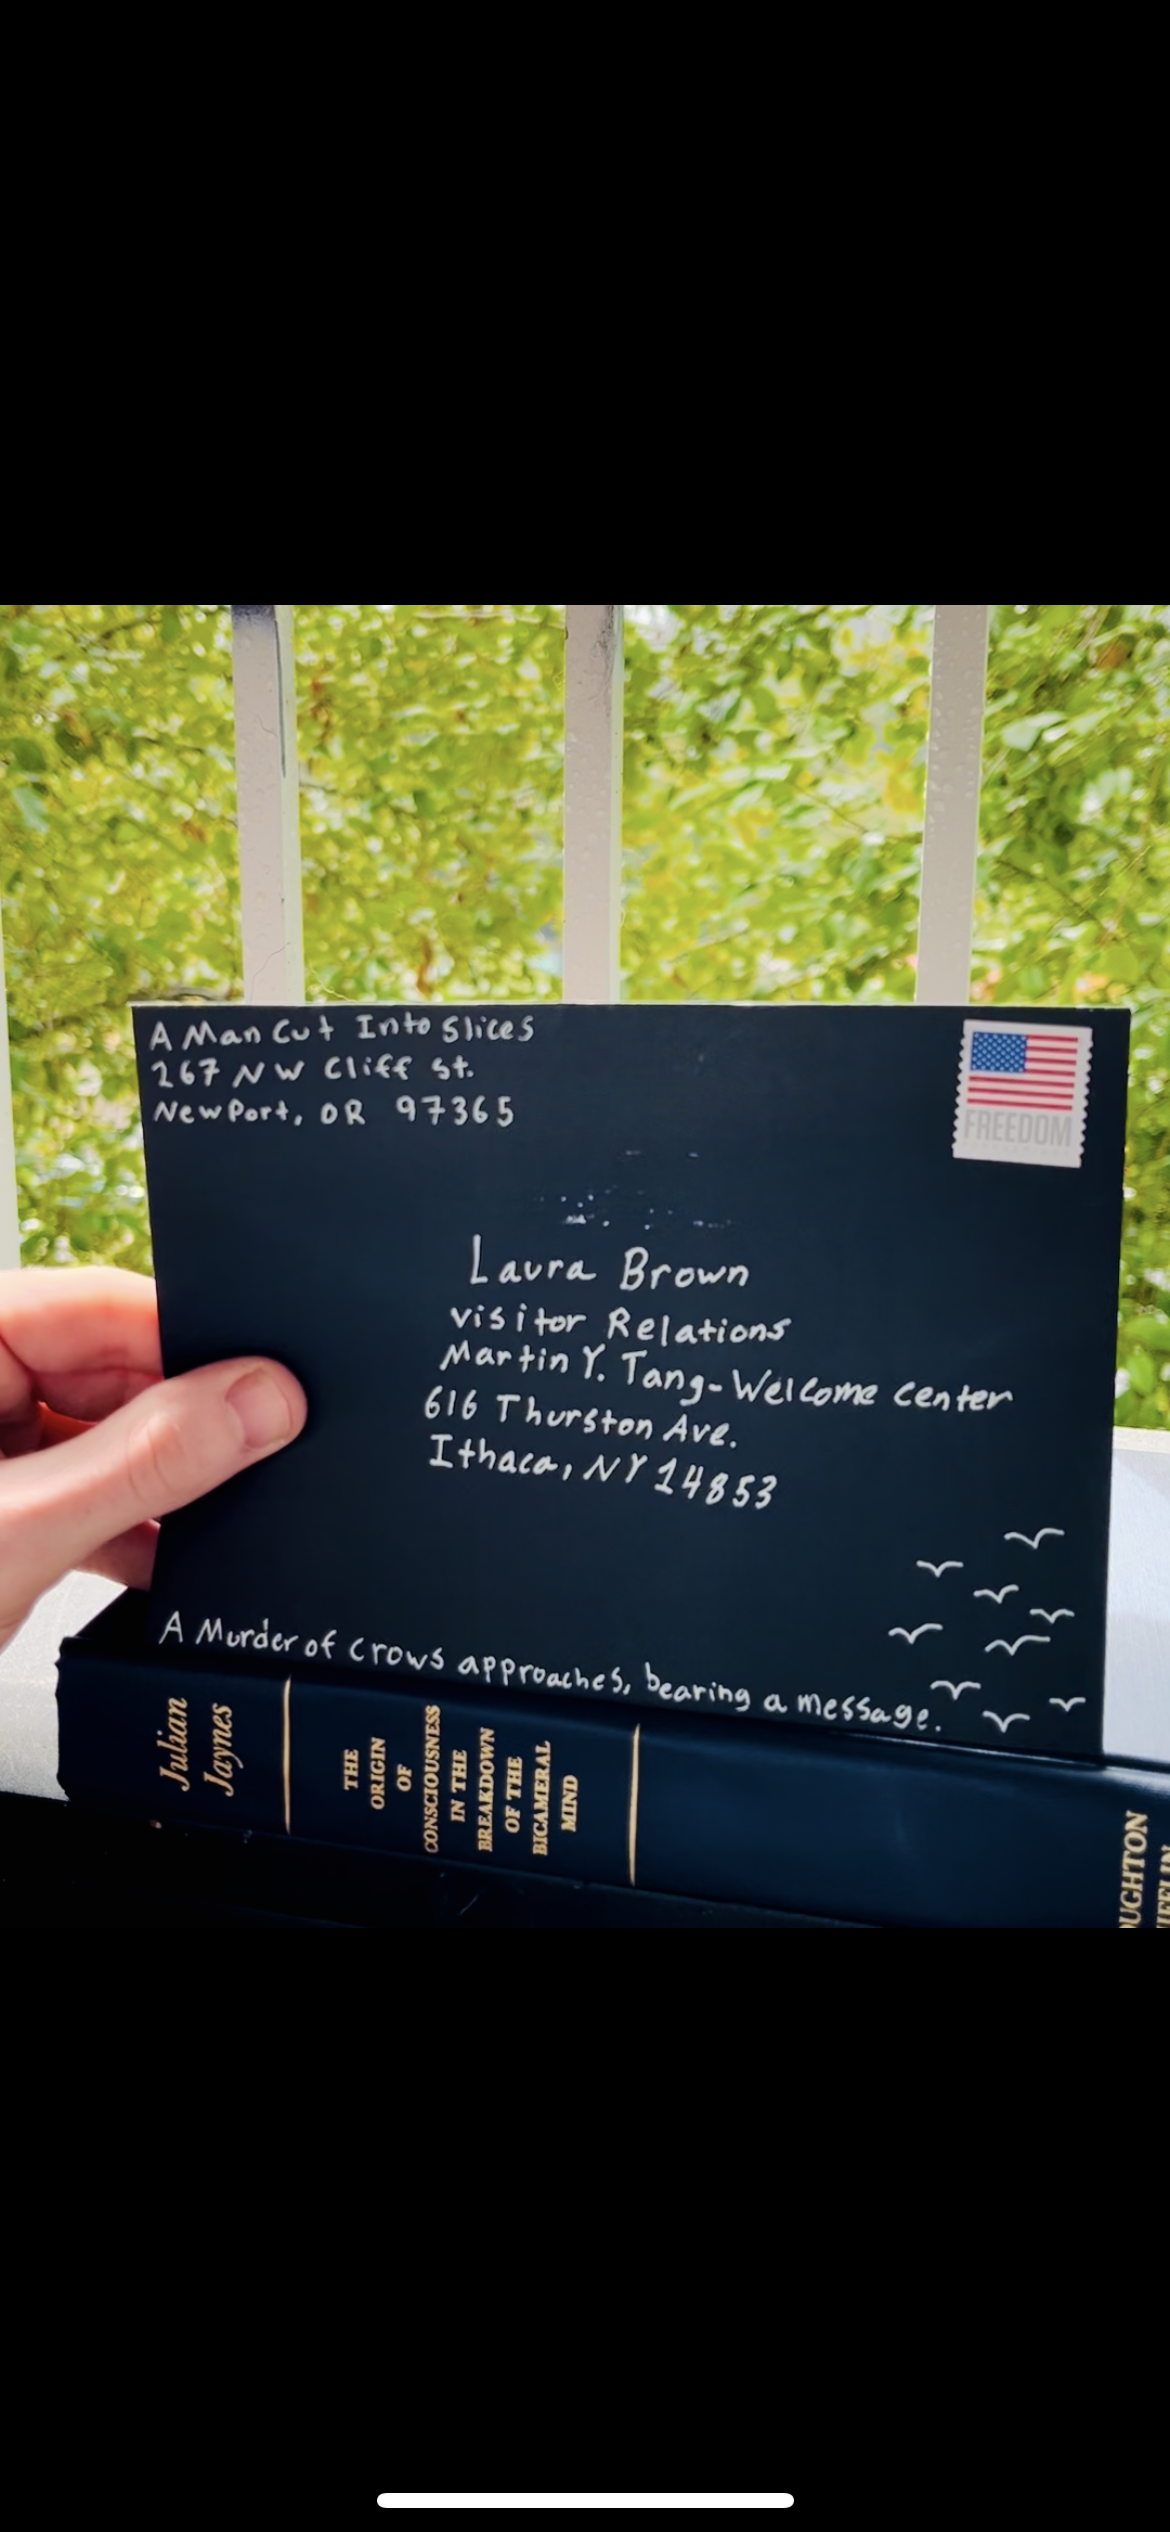 A Man Cut Into Slices
267 NW Cliff St.
Newport, OR 97365
FREEDOM
Laura Brown
Visitor Relations
Martin Y. Tang-Welcome Center
616 Thurston Ave.
Ithaca, NY 14853
A Murder of Crows approaches, bearing a message.
Julian
Jaynes
THE
ORIGIN
OF
CONSCIOUSNESS
IN THE
BREAKDOWN
OF THE
BICAMERAL
MIND